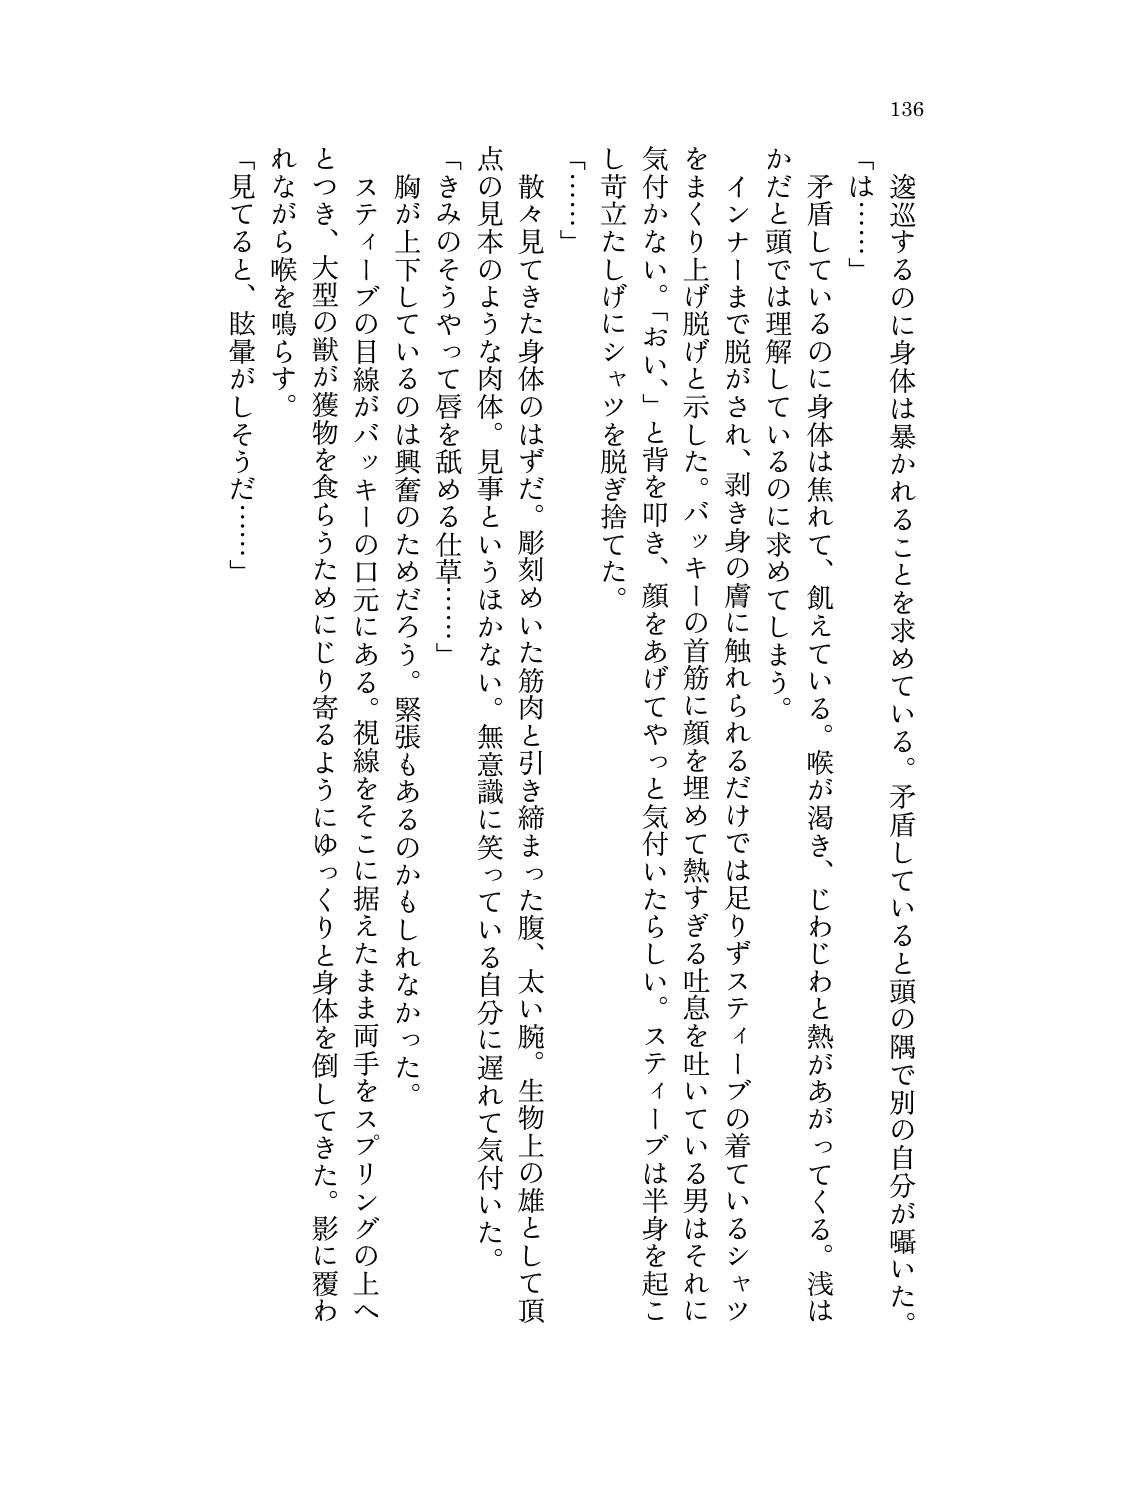 136
逡巡するのに身体は暴かれることを求めている。矛盾していると頭の隅で別の自分が囁いた。
「は……」
矛盾しているのに身体は焦れて、飢えている。喉が渇き、じわじわと熱があがってくる。浅は
かだと頭では理解しているのに求めてしまう。
インナーまで脱がされ、剥き身の膚に触れられるだけでは足りずスティーブの着ているシャツ
をまくり上げ脱げと示した。バッキーの首筋に顔を埋めて熱すぎる吐息を吐いている男はそれに
気付かない。「おい、」と背を叩き、顔をあげてやっと気付いたらしい。スティーブは半身を起こ
し苛立たしげにシャツを脱ぎ捨てた。
「……」
散々見てきた身体のはずだ。彫刻めいた筋肉と引き締まった腹、太い腕。生物上の雄として頂
点の見本のような肉体。見事というほかない。無意識に笑っている自分に遅れて気付いた。
「きみのそうやって唇を舐める仕草……」
胸が上下しているのは興奮のためだろう。緊張もあるのかもしれなかった。
スティーブの目線がバッキーの口元にある。視線をそこに据えたまま両手をスプリングの上へ
とつき、大型の獣が獲物を食らうためにじり寄るようにゆっくりと身体を倒してきた。影に覆わ
れながら喉を鳴らす。
「見てると、眩暈がしそうだ……」